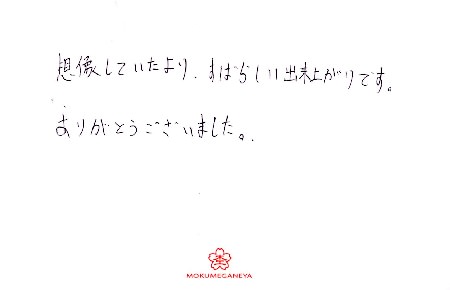 想像していたより、すばらしい出来上がりです。
ありがとうございました。
MOKUMEGANEYA